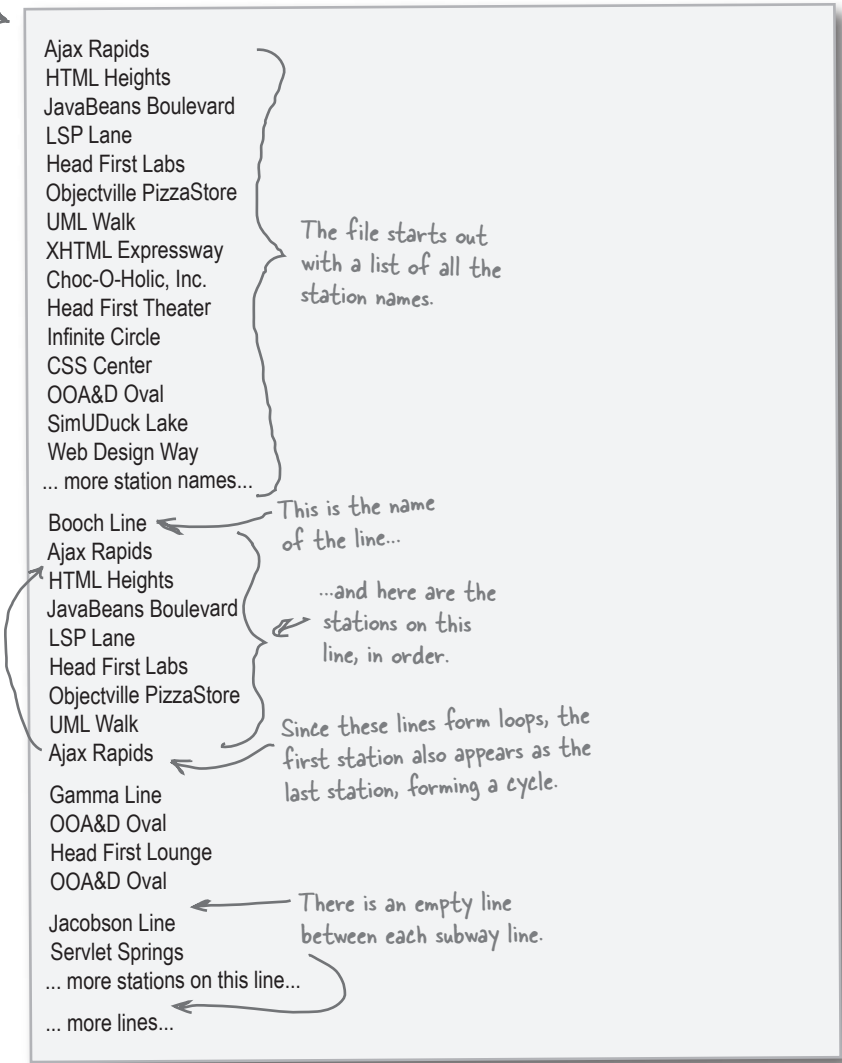 Ajax Rapids
HTML Heights
JavaBeans Boulevard
LSP Lane
Head First Labs
Objectville PizzaStore
UML Walk
XHTML Expressway
Choc-O-Holic, Inc.
Head First Theater
Infinite Circle
CSS Center
OOA&D Oval
SimUDuck Lake
Web Design Way
... more station names...
The file starts out
with a list of all the
station names.
Booch Line
This is the name
of the line...
Ajax Rapids
HTML Heights
JavaBeans Boulevard
LSP Lane
Head First Labs
Objectville PizzaStore
UML Walk
Ajax Rapids
...and here are the
stations on this
line, in order.
Since these lines form loops, the
first station also appears as the
last station, forming a cycle.
Gamma Line
OOA&D Oval
Head First Lounge
OOA&D Oval
There is an empty line
between each subway line.
Jacobson Line
Servlet Springs
... more stations on this line...
... more lines...